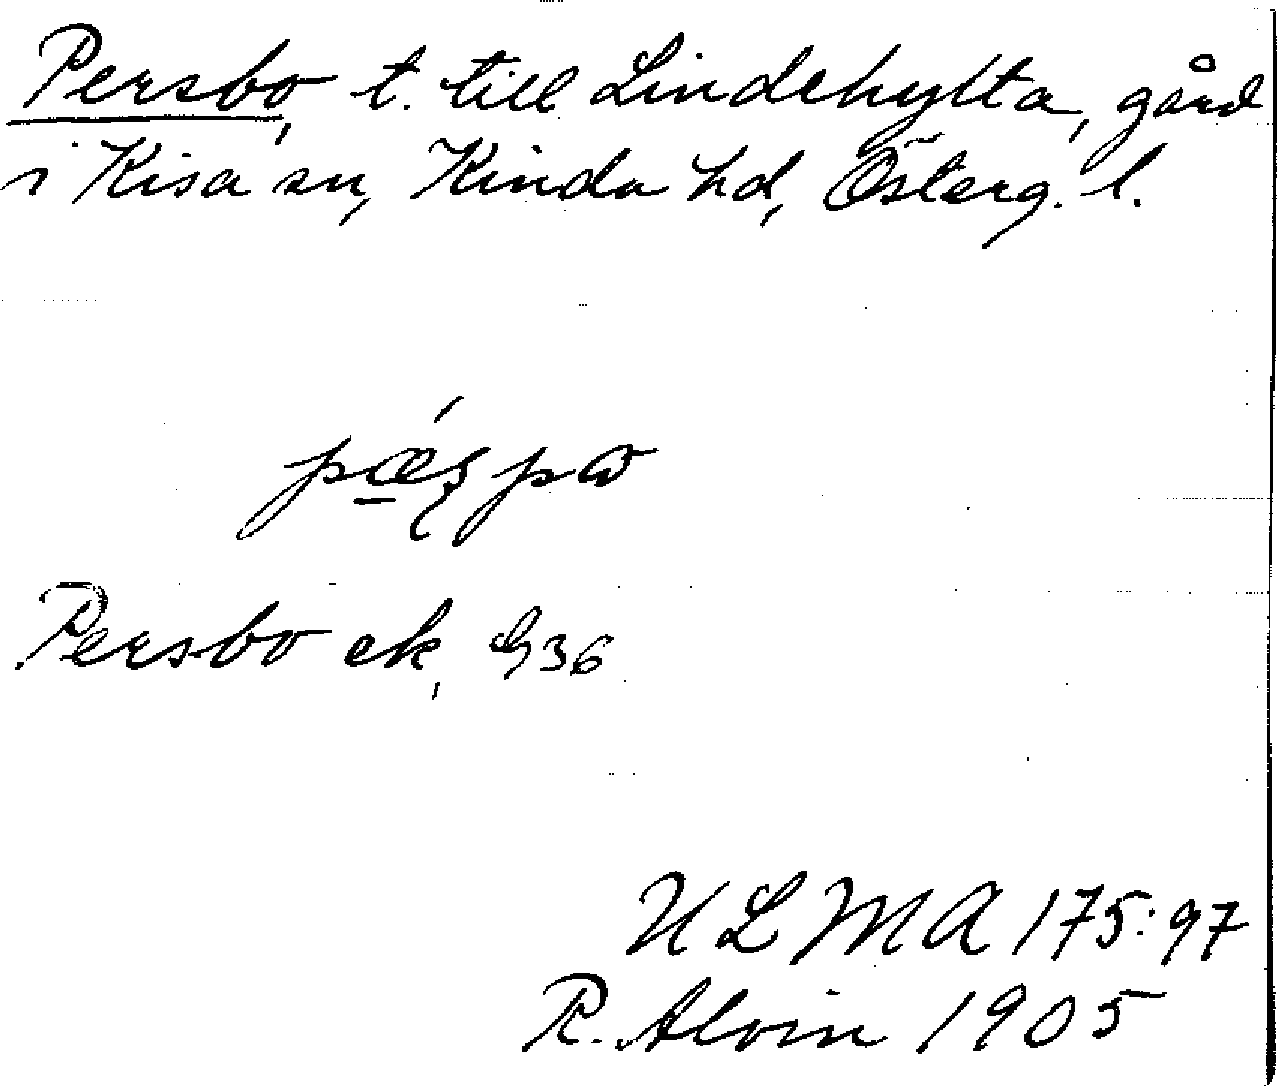 Persbo, t. till Lindehytta, gård
i Kisa sn, Kinda hd, Österg. l.
Persbo ek, G36
ULMA 175:97
R. Alvin 1905